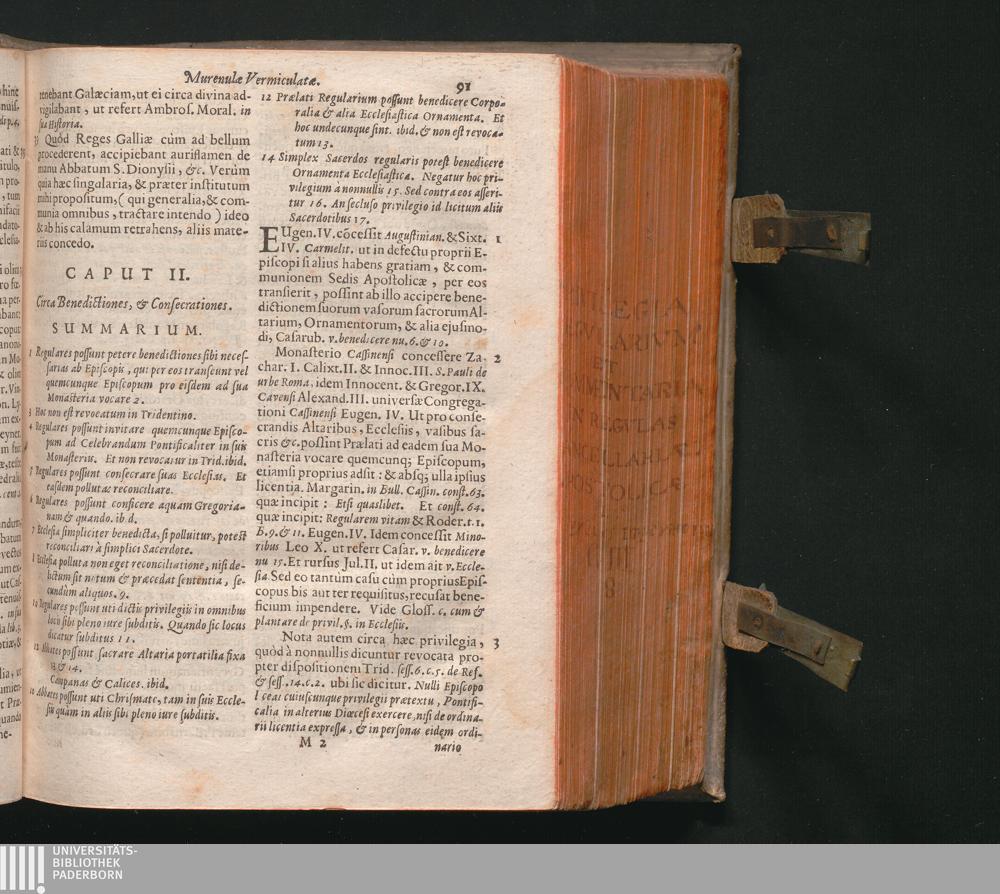 Murenulæ Vermiculatæ.
91
tenebant Galæciam, ut ei circa divina ad-
vigilabant, ut refert Ambros. Moral. in
sua Historia.
Quòd Reges Galliæ cùm ad bellum
procederent, accipiebant auristamen de
manu Abbatum S. Dionysii, &c. Verùm
quia hæc singularia, & præter institutum
mihi propositum, (qui generalia, & com-
munia omnibus, tractare intendo) ideo
& ab his calamum retrahens, aliis mate-
riis concedo.
CAPUT II.
Circa Benedictiones, & Consecrationes.
SUMMARIUM.
1 Regulares possunt petere benedictiones sibi neces-
sarias ab Episcopis, qui per eos transeunt vel
quemcunque Episcopum pro eisdem ad sua
Monasteria vocare 2.
3 Hoc non est revocatum in Tridentino.
4 Regulares possunt invitare quemcunque Episco-
pum ad Celebrandum Pontificaliter in suis
Monasteriis. Et non revocatur in Trid. ibid.
5 Regulares possunt consecrare suas Ecclesias. Et
easdem pollutas reconciliare.
6 Regulares possunt conficere aquam Gregoria-
nam & quando. ibid.
7 Ecclesia simpliciter benedicta, si polluitur, potest
reconciliari à simplici Sacerdote.
8 Ecclesia polluta non eget reconciliatione, nisi de-
lictum sit notum & præcedat sententia, se-
cundùm aliquos. 9.
10 Regulares possunt uti dictis privilegiis in omnibus
locis sibi pleno iure subditis. Quando sic locus
dicatur subditus 11.
12 Abbates possunt sacrare Altaria portatilia fixa
& 14.
Campanas & Calices. ibid.
Abbates possunt uti Chrismate, tam in suis Eccle-
siis quàm in aliis sibi pleno iure subditis.
12 Prælati Regularium possunt benedicere Corpo-
ralia & alia Ecclesiastica Ornamenta. Et
hoc undecunque sint. ibid. & non est revoca-
tum 13.
14 Simplex Sacerdos regularis potest benedicere
Ornamenta Ecclesiastica. Negatur hoc pri-
vilegium à nonnullis 15. Sed contra eos asseri-
tur 16. An secluso privilegio id licitum aliis
Sacerdotibus 17.
EUgen. IV. cōcessit Augustinian. & Sixt. 1
IV. Carmelit. ut in defectu proprii E-
piscopi si alius habens gratiam, & com-
munionem Sedis Apostolicæ, per eos
transierit, possint ab illo accipere bene-
dictionem suorum vasorum sacrorum Al-
tarium, Ornamentorum, & alia ejusmo-
di, Casarub. v. benedicere nu. 6. & 10.
Monasterio Cassinensi concessere Za- 2
char. I. Calixt. II. & Innoc. III. S. Pauli de
urbe Roma, idem Innocent. & Gregor. IX.
Cavensi Alexand. III. universæ Congrega-
tioni Cassinensi Eugen. IV. Ut pro conse-
crandis Altaribus, Ecclesiis, vasibus sa-
cris &c. possint Prælati ad eadem sua Mo-
nasteria vocare quemcunq; Episcopum,
etiamsi proprius adsit: & absq; ulla ipsius
licentia. Margarin. in Bull. Cassin. const. 63.
quæ incipit: Etsi quaslibet. Et const. 64.
quæ incipit: Regularem vitam & Roder. t. 1.
B. 9. & 11. Eugen. IV. Idem concessit Mino-
ribus Leo X. ut refert Casar. v. benedicere
nu 15. Et rursus Jul. II. ut idem ait v. Eccle-
sia. Sed eo tantùm casu cùm proprius Epis-
copus bis aut ter requisitus, recusat bene-
ficium impendere. Vide Gloss. c. cum &
plantare de privil. §. in Ecclesiis.
Nota autem circa hæc privilegia, 3
quòd à nonnullis dicuntur revocata pro-
pter dispositionem Trid. sess. 6. c. 5. de Ref.
& sess. 14. c. 2. ubi sic dicitur. Nulli Episcopo
liceat cuiuscunque privilegii prætextu, Pontifi-
calia in alterius Diœcesi exercere, nisi de ordina-
rii licentia expressa, & in personas eidem ordi-
M 2
nario
ET
IN REGULAS
UNIVERSITÄTS-
BIBLIOTHEK
PADERBORN